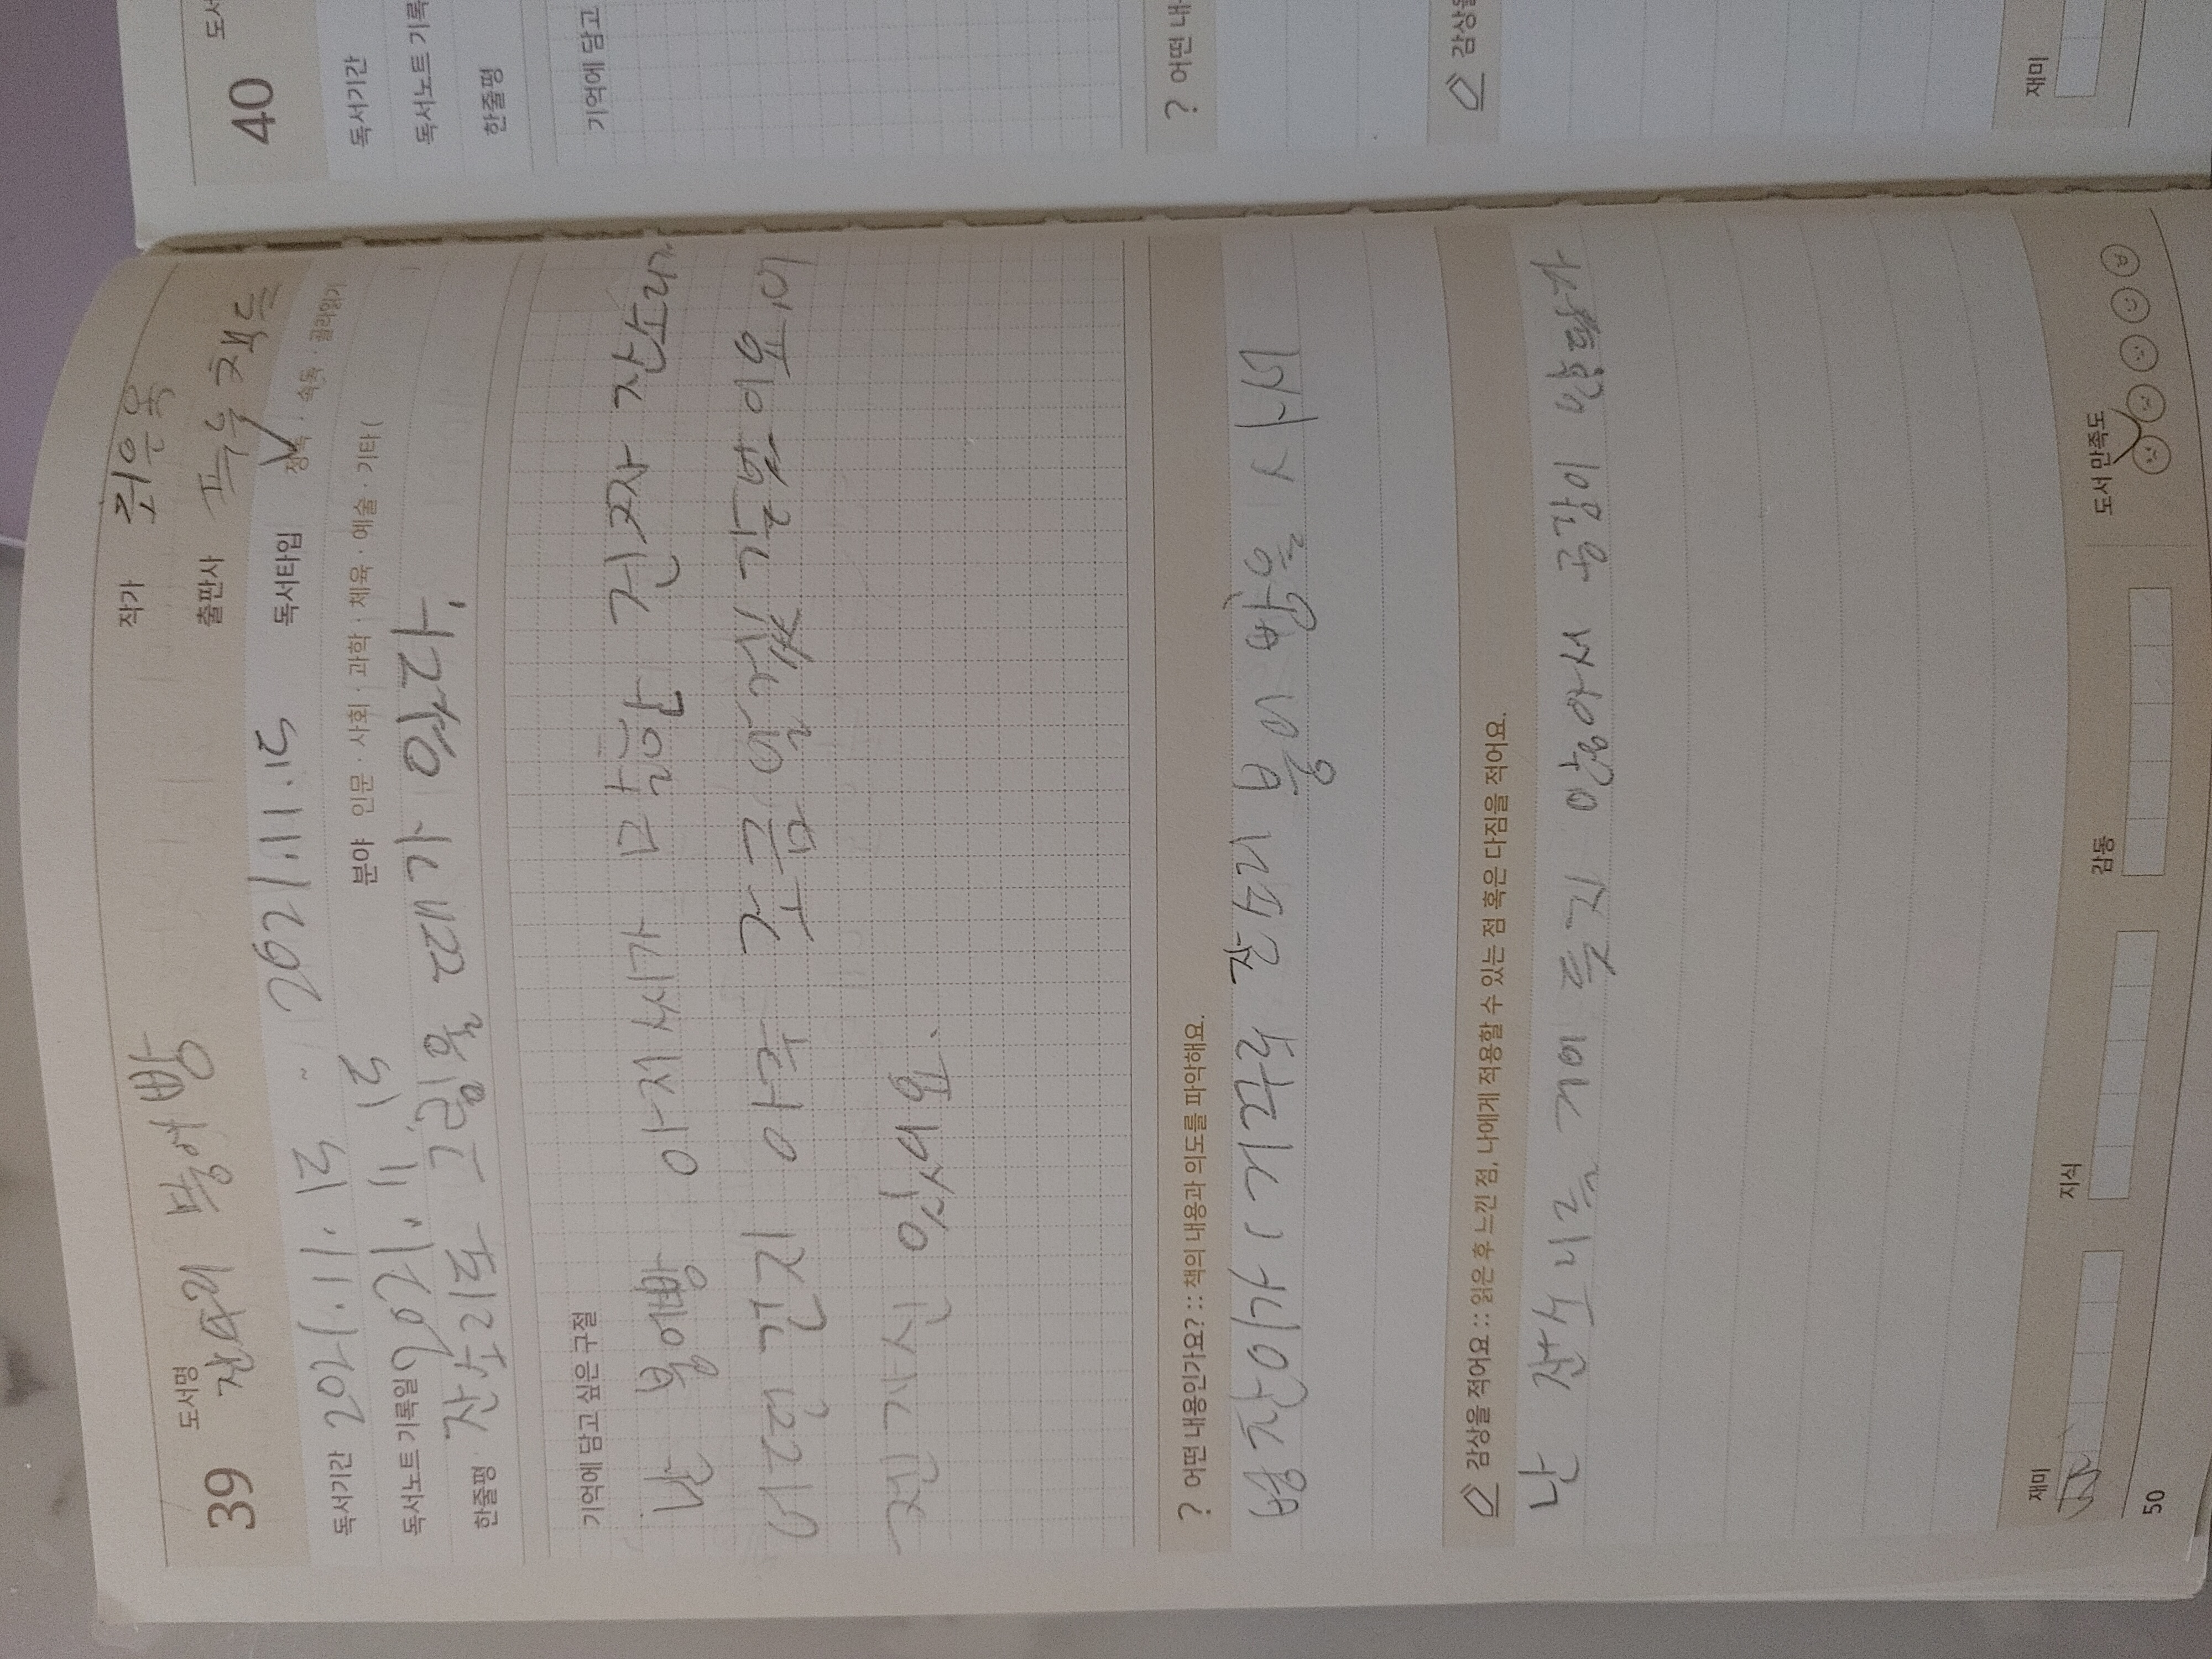 39 도서명 잔소리 붕어빵
작가 최은옥
출판사 푸른 책들
독서기간 2021.11.15 - 2021.11.15
독서타입 정독 · 속독 · 골라읽기
독서노트 기록일 2021.11.15
분야 인문 · 사회 · 과학 · 체육 · 예술 · 기타 (
한줄평 잔소리도 그림울 때가 있다.
기억에 담고 싶은 구절
난 붕어빵 아저씨가 말한 진짜 잔소리가
어떤 건지 아주 조금 알겠 같었어요. 어
젠 자신 있어요.
? 어떤 내용인가요? :: 책의 내용과 의도를 파악해요.
병찬이가 거꾸로 잔소리 붕어 빵을 사서
감상을 적어요 :: 읽은 후 느낀 점, 나에게 적용할 수 있는 점 혹은 다짐을 적어요.
난 잔소리를 거이 듯지 안아서 공감이
재미
지식
감동
도서 만족도
50
40 도서
독서기간
독서노트 기록
한줄평
기억에 담고
? 어떤 내
감상을
재미